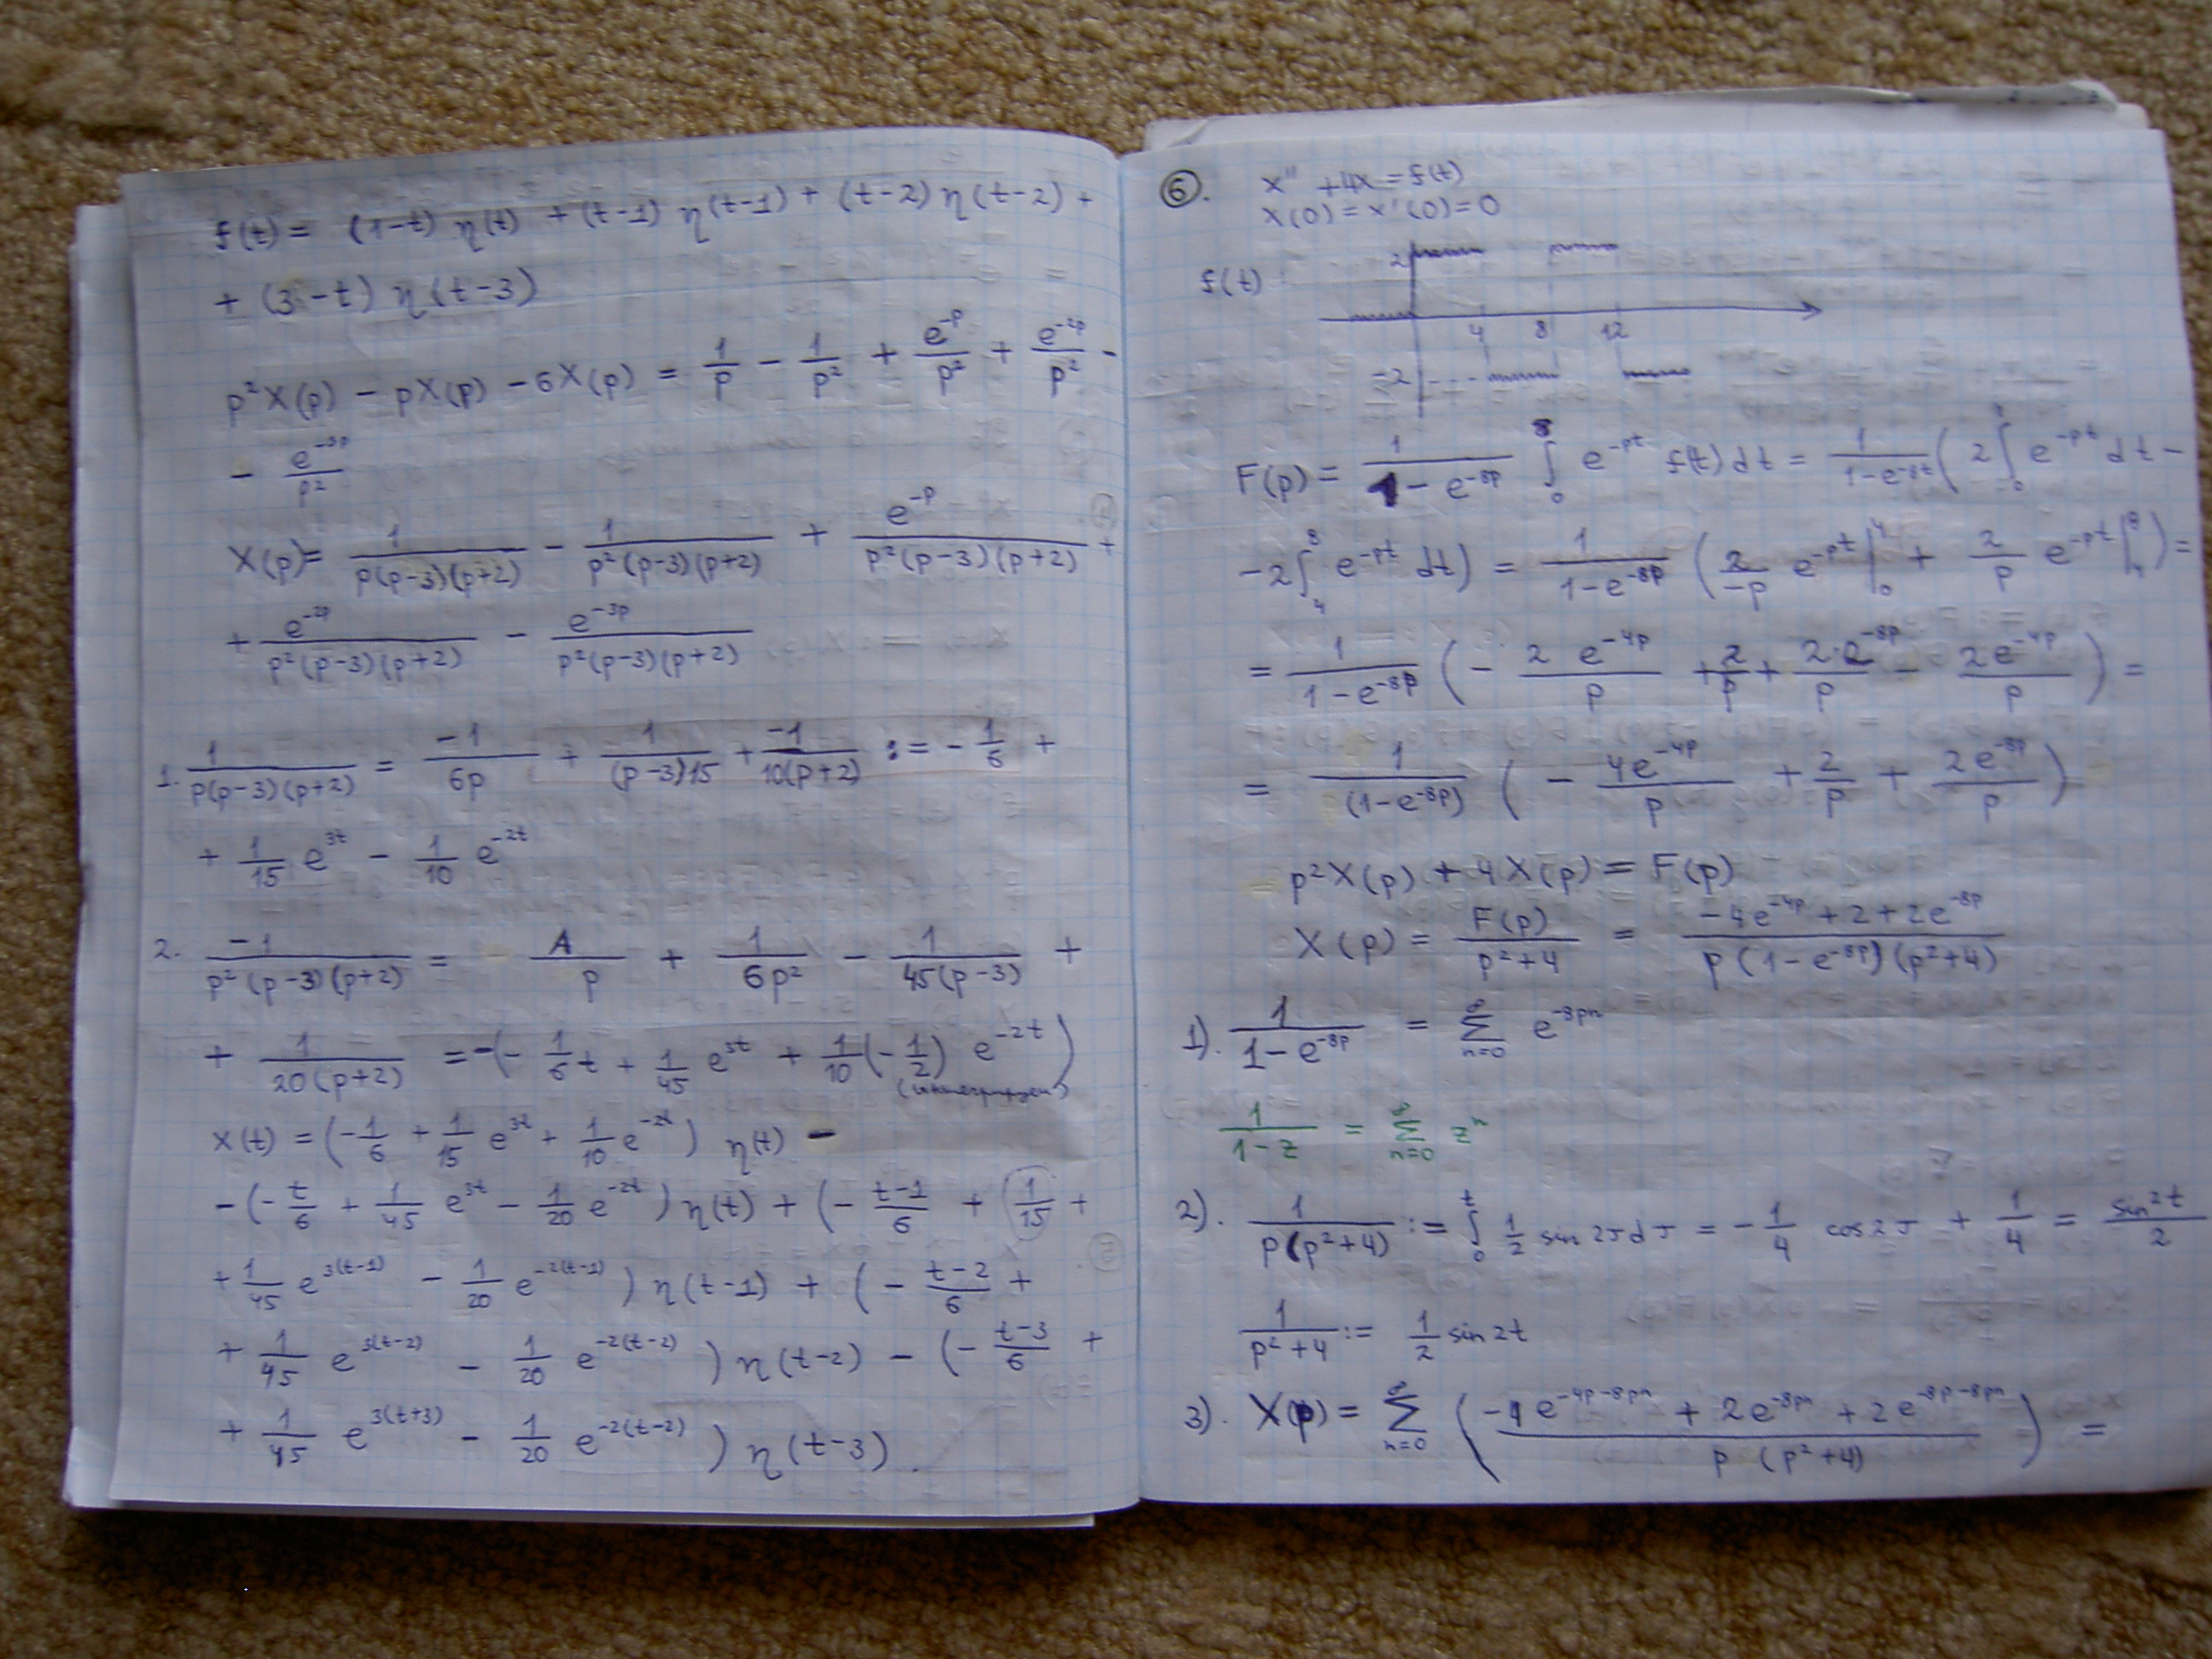 f(t) = (1-t) η(t) + (t-1) η(t-1) + (t-2) η(t-2) +
+ (3-t) η(t-3)
p²X(p) - pX(p) - 6X(p) = 1/p - 1/p² + e^{-p}/p² + e^{-2p}/p² -
- e^{-3p}/p²
X(p) = 1/(p(p-3)(p+2)) - 1/(p²(p-3)(p+2)) + e^{-p}/(p²(p-3)(p+2)) +
+ e^{-2p}/(p²(p-3)(p+2)) - e^{-3p}/(p²(p-3)(p+2))
1. 1/(p(p-3)(p+2)) = -1/(6p) + 1/((p-3)15) + -1/(10(p+2)) := -1/6 +
+ 1/15 e^{3t} - 1/10 e^{-2t}
2. -1/(p²(p-3)(p+2)) = A/p + 1/(6p²) - 1/(45(p-3)) +
+ 1/(20(p+2)) = -(-1/6 t + 1/45 e^{3t} + 1/10 (-1/2) e^{-2t})
X(t) = (-1/6 + 1/15 e^{3t} + 1/10 e^{-2t}) η(t) -
- (-t/6 + 1/45 e^{3t} - 1/20 e^{-2t}) η(t) + (-(t-1)/6 + (1/15 +
+ 1/45 e^{3(t-1)} - 1/20 e^{-2(t-1)}) η(t-1) + (-(t-2)/6 +
+ 1/45 e^{3(t-2)} - 1/20 e^{-2(t-2)}) η(t-2) - (-(t-3)/6 +
+ 1/45 e^{3(t+3)} - 1/20 e^{-2(t-2)}) η(t-3).
6. x'' + 4x = f(t)
x(0) = x'(0) = 0
f(t)
2
4 8 12
-2
F(p) = 1/(1-e^{-8p}) ∫_0^8 e^{-pt} f(t) dt = 1/(1-e^{-8t}) (2∫_0^4 e^{-pt} dt -
-2∫_4^8 e^{-pt} dt) = 1/(1-e^{-8p}) (2/-p e^{-pt}|_0^4 + 2/p e^{-pt}|_4^8) =
= 1/(1-e^{-8p}) (- 2 e^{-4p}/p + 2/p + 2·e^{-8p}/p - 2e^{-4p}/p) =
= 1/(1-e^{-8p}) (- 4e^{-4p}/p + 2/p + 2e^{-8p}/p)
p²X(p) + 4X(p) = F(p)
X(p) = F(p)/(p²+4) = (-4e^{-4p} + 2 + 2e^{-8p})/(p(1-e^{-8p})(p²+4))
1). 1/(1-e^{-8p}) = ∑_{n=0}^∞ e^{-8pn}
1/(1-z) = ∑_{n=0}^∞ z^n
2). 1/(p(p²+4)) := ∫_0^t 1/2 sin 2τ dτ = -1/4 cos 2τ + 1/4 = sin²t/2
1/(p²+4) := 1/2 sin 2t
3). X(p) = ∑_{n=0}^∞ ((-4e^{-4p-8pn} + 2e^{-8pn} + 2e^{-8p-8pn})/(p (p²+4))) =